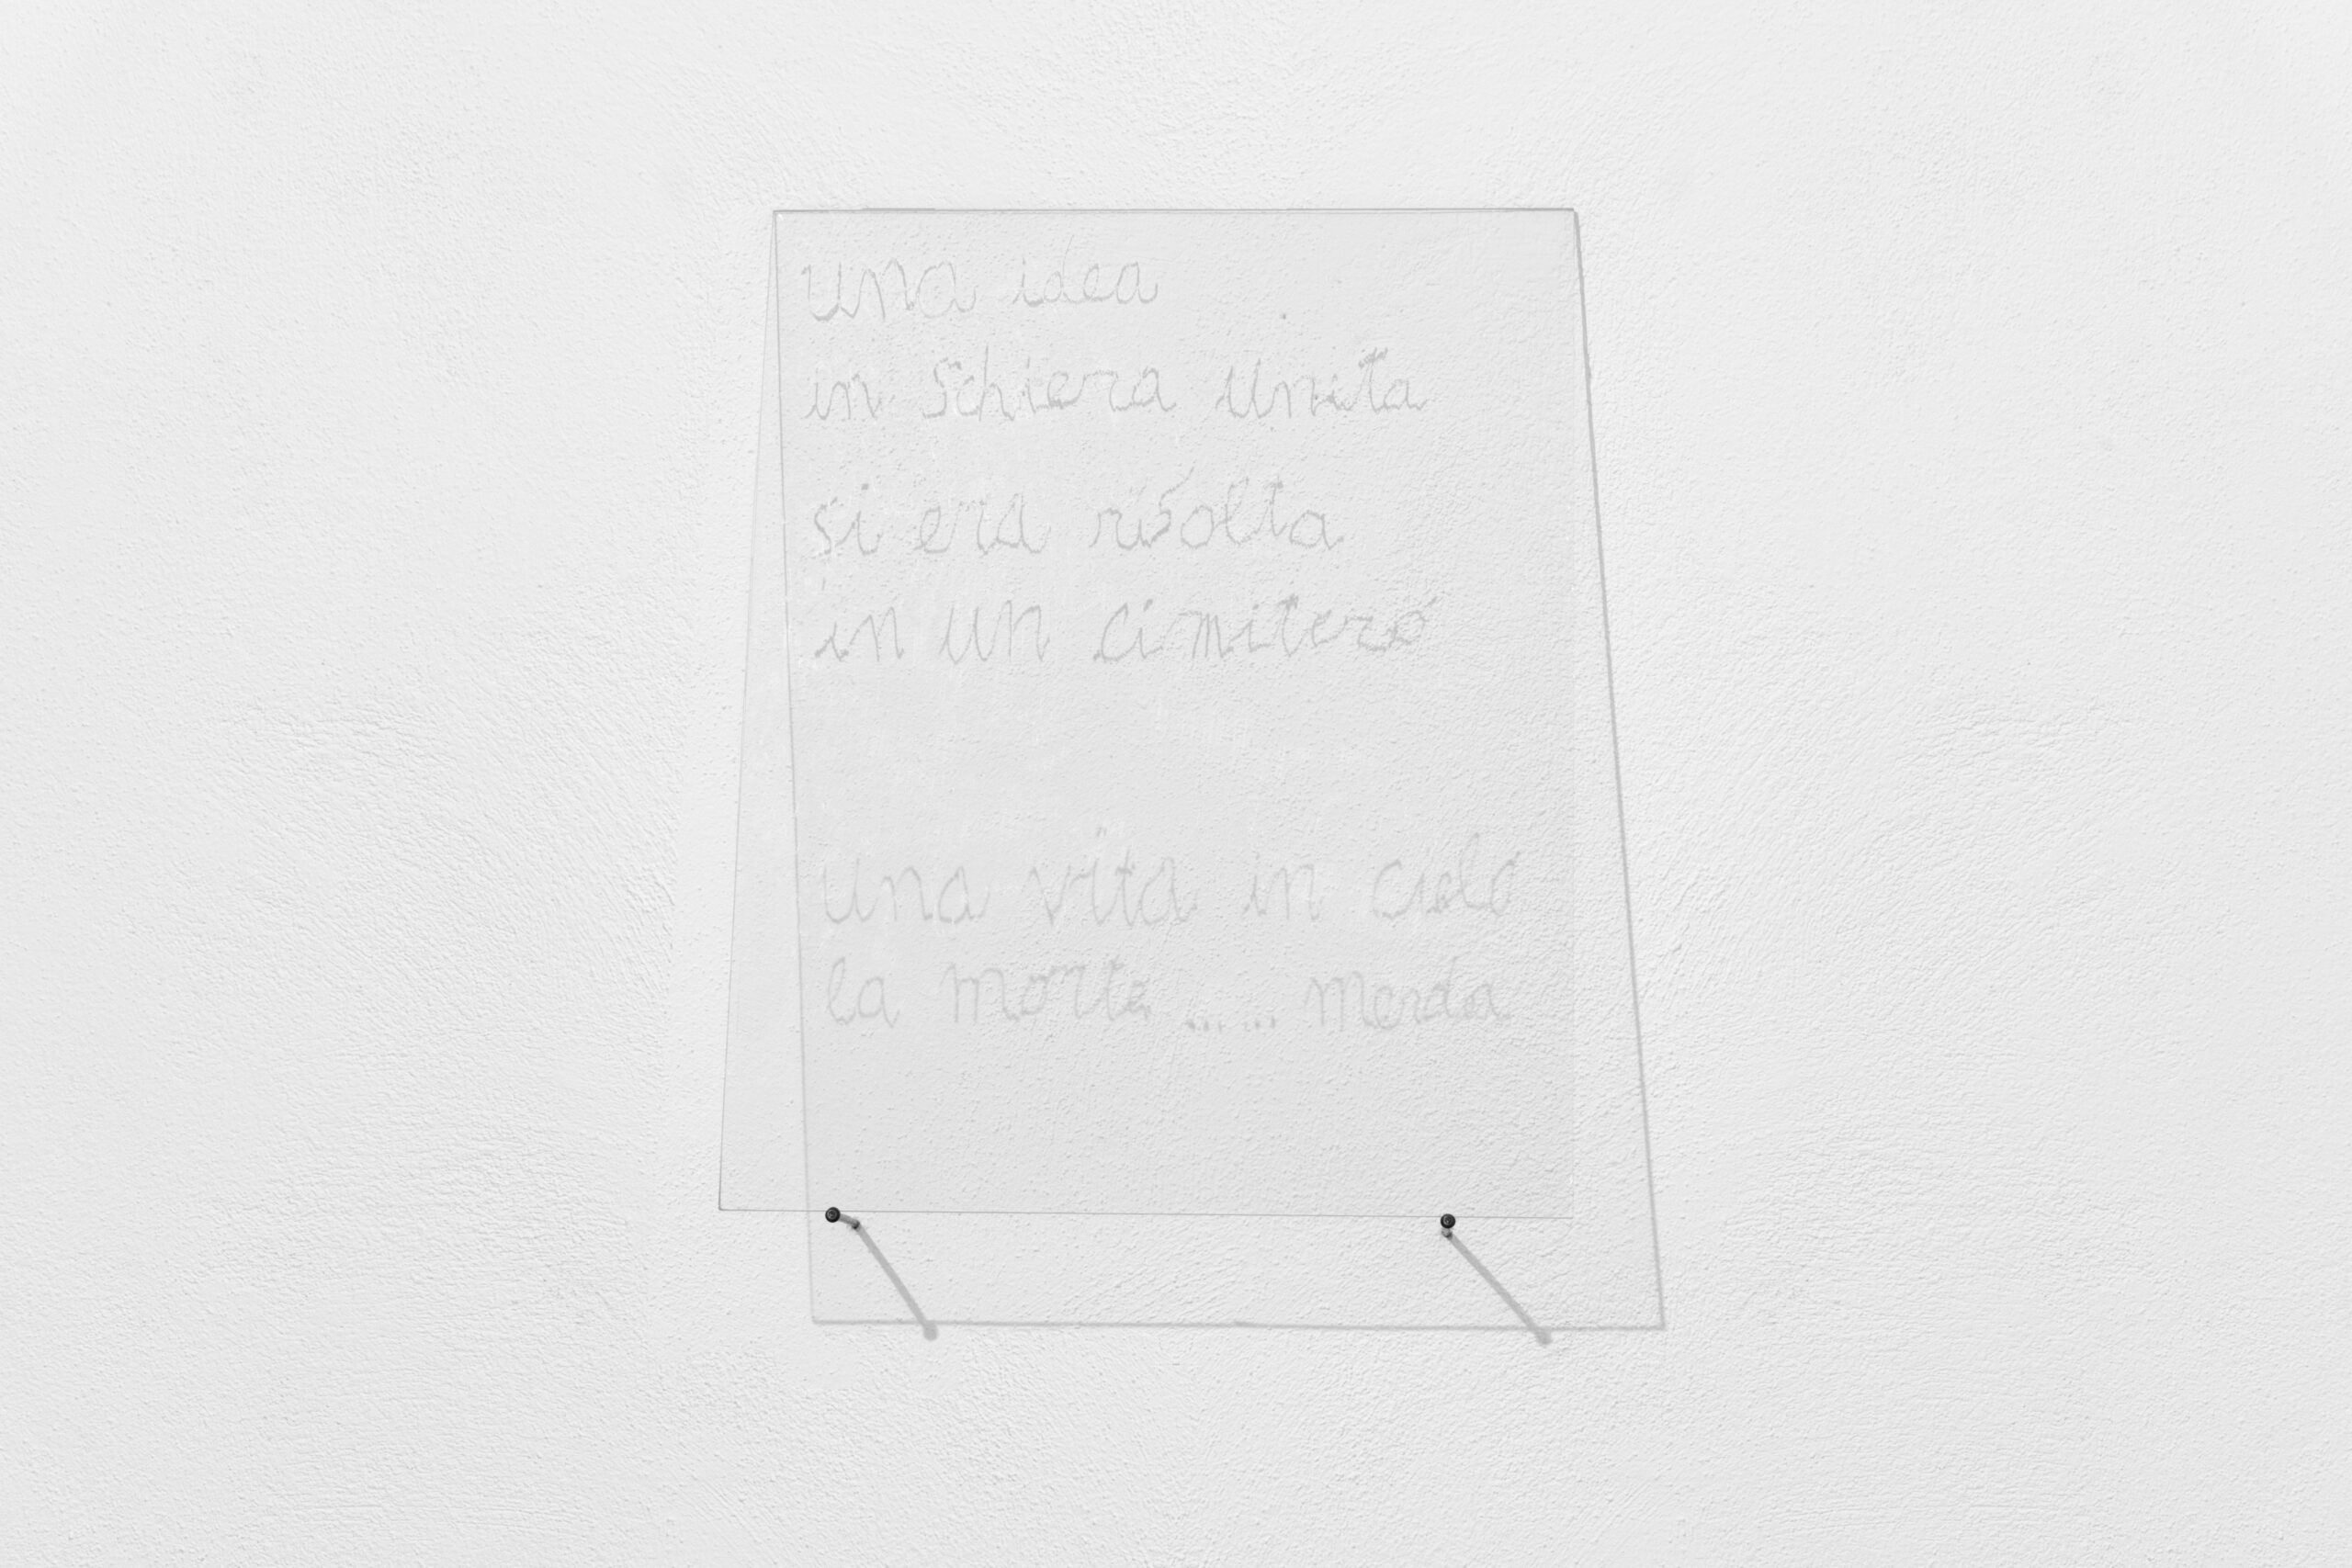 una idea
in schiera unita
si era risolta
in un cimitero
una vita in cielo
la morte ... ... merda